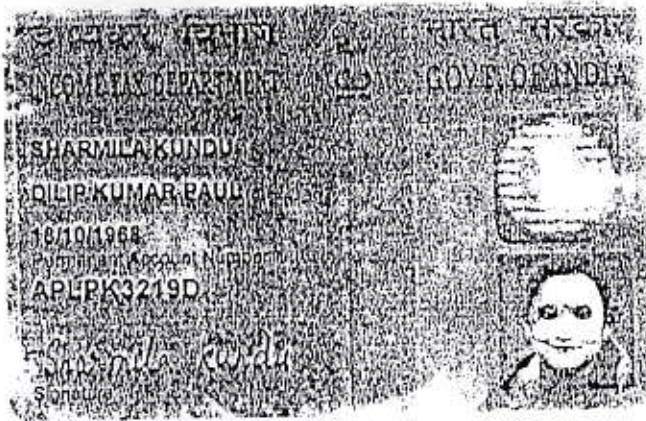 आयकर विभाग
INCOME TAX DEPARTMENT
भारत सरकार
GOVT. OF INDIA
SHARMILA KUNDU
DILIP KUMAR PAUL
18/10/1968
Permanent Account Number
APLPK3219D
Sharmila Kundu
Signature